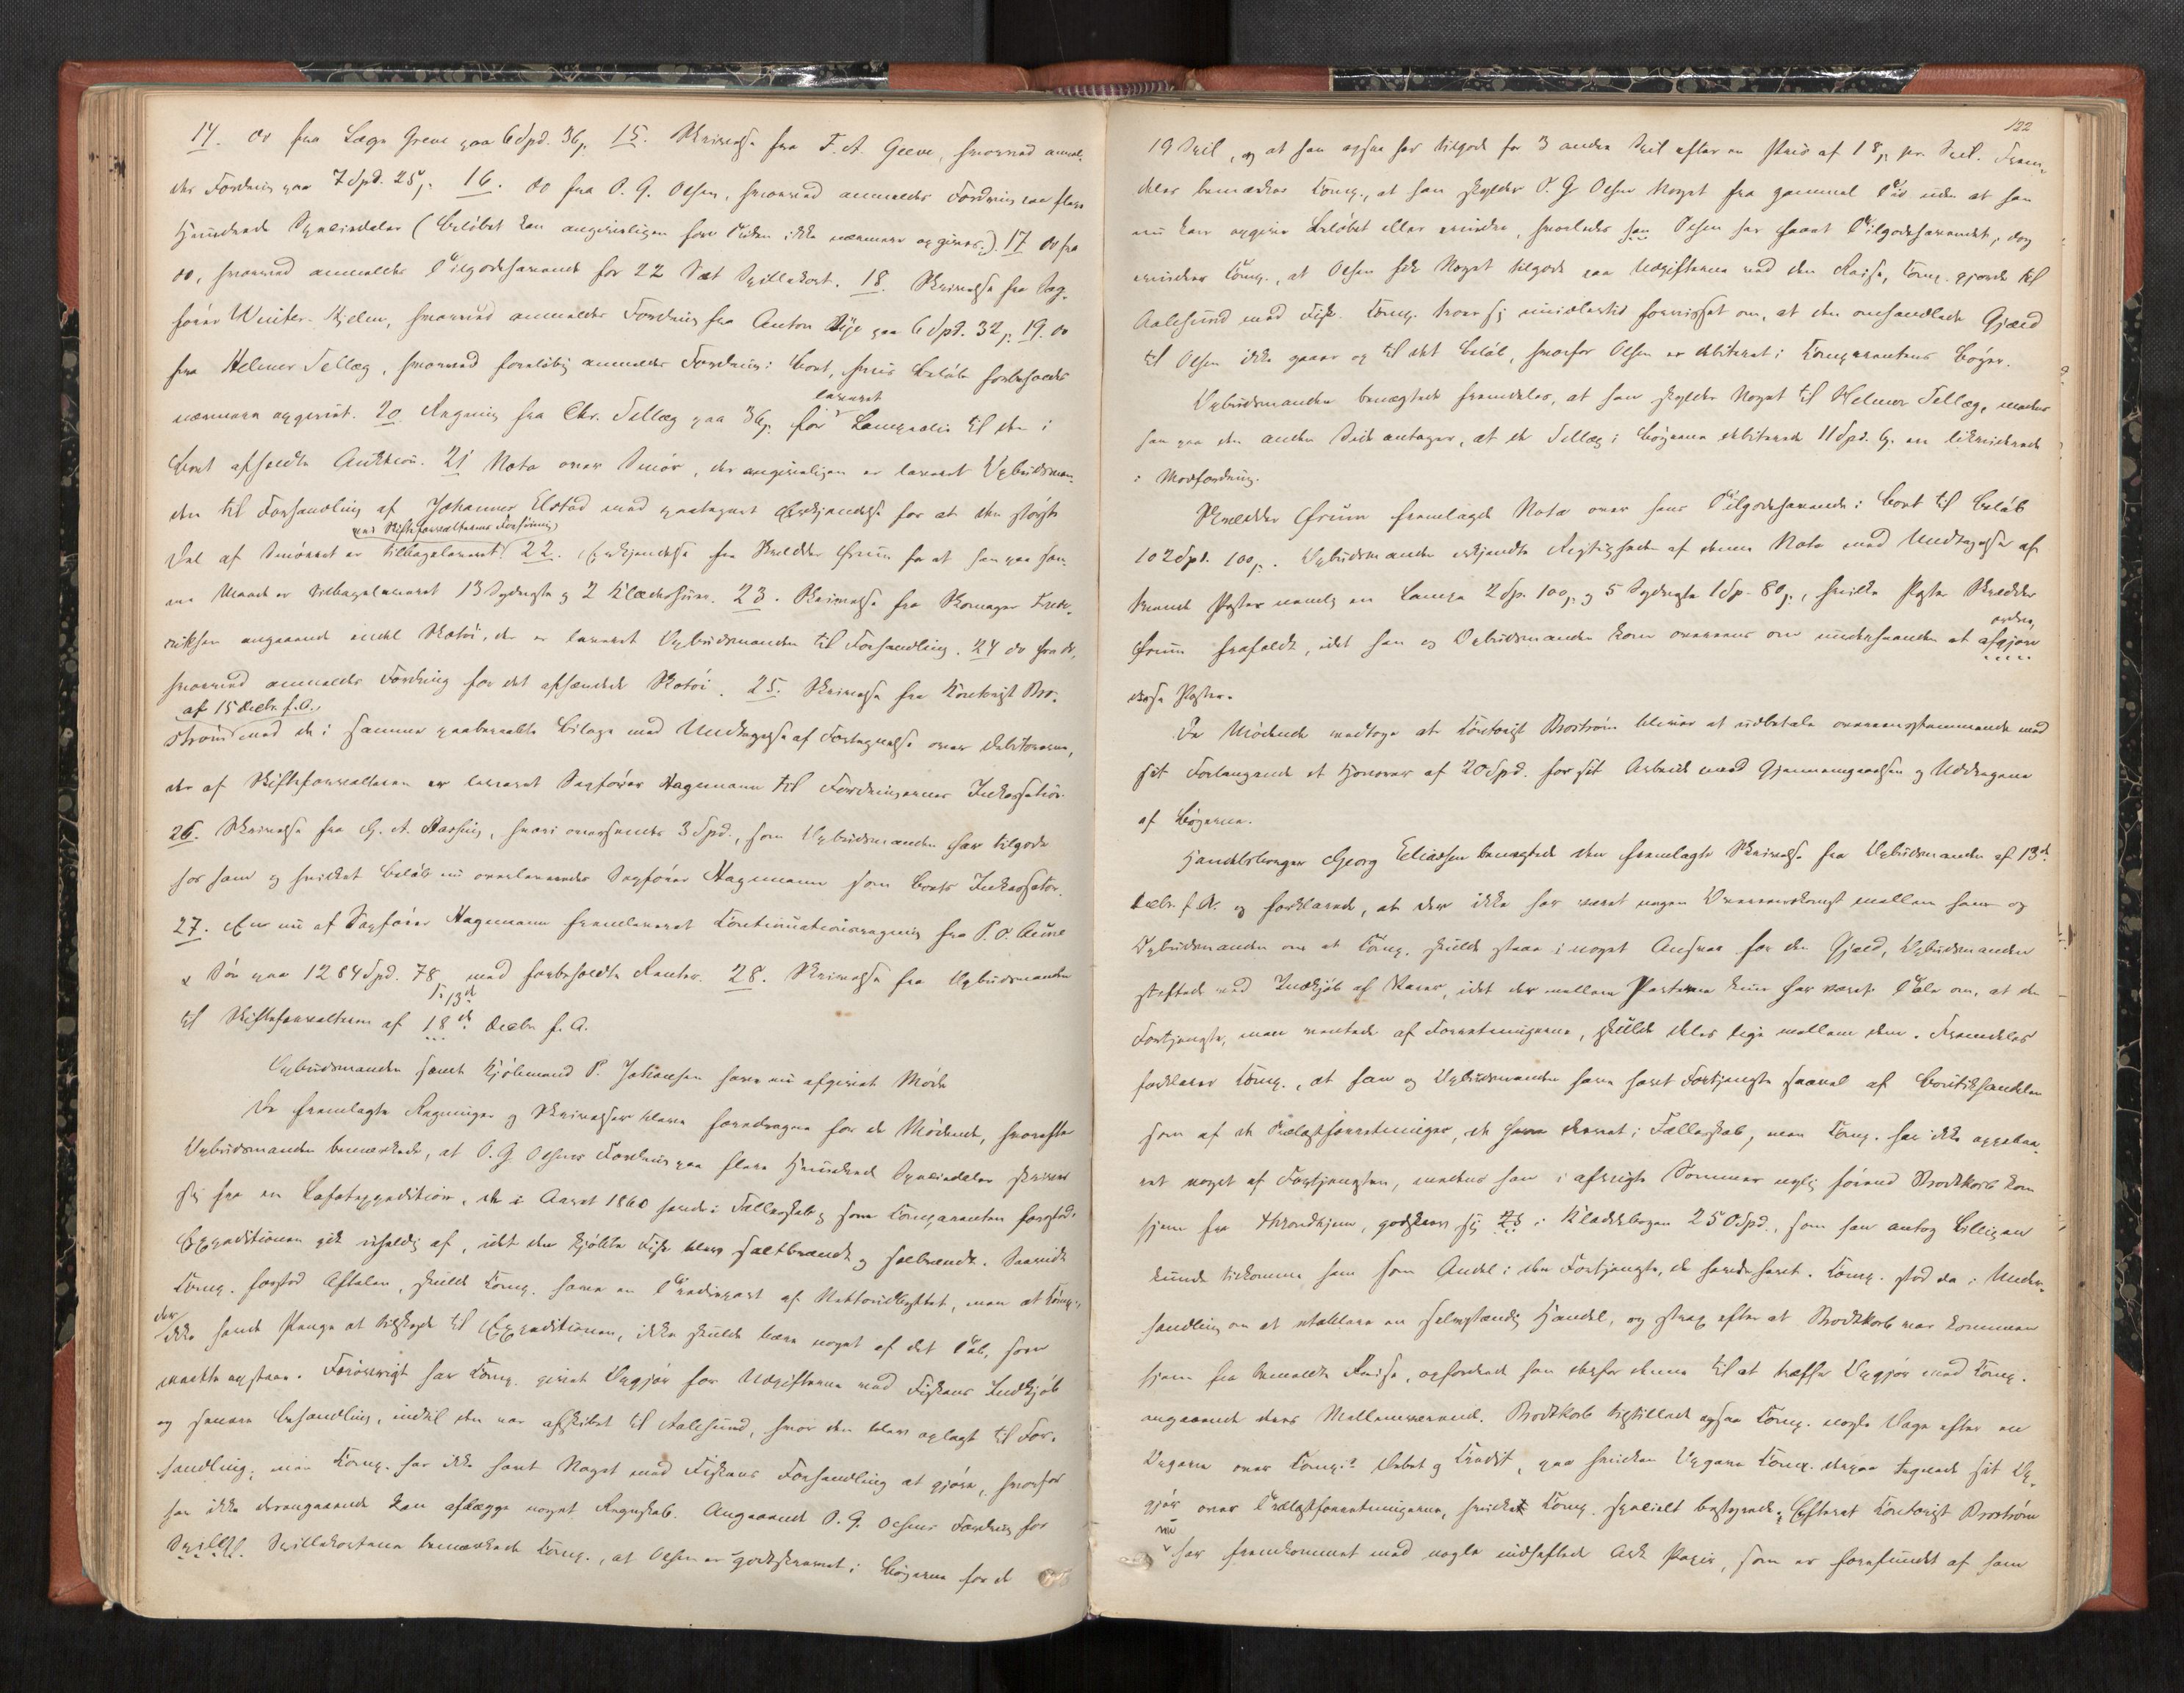 14. do fra Læge Greve paa 6 Spd. 36 s. 15. Skrivelse fra F. A. Greve, hvorved anmel-
des Fordring paa 7 Spd. 25 s. 16. do fra O. G. Olsen, hvorved anmeldes Fordring paa flere
Hundrede Speciedaler (Beløbet kan angiveligen for Tiden ikke nærmere opgives). 17 do fra
do, hvorved anmeldes Tilgodehavende for 22 Sæt Spillekort. 18. Skrivelse fra Sag-
fører Winter-Hjelm, hvorved anmeldes Fordring fra Anton Dye paa 6 Spd. 32 s. 19. do
fra Helmer Sellæg, hvorved foreløbig anmeldes Fordring i Boet, hvis Beløb forbeholdes
nærmere opgivet. 20. Regning fra Chr. Sellæg paa 36 s. for leveret Lampeolie til den i
Boet afholdte Auktion. 21 Nota over Smør, der angiveligen er leveret Opbudsman-
den til Forhandling af Johannes Elstad med paategnet Erkjendelse for at den største
Del af Smørret er ved Skifteforvalterens Foranstaltning tilbageleveret. 22. Erkjendelse fra Skrædder Grum for at han paa sam-
me Maade er tilbageleveret 13 Sydveste og 2 Klædeshuer. 23. Skrivelse fra Skomager Fred-
riksen angaaende endel Skotøi, der er leveret Opbudsmanden til Forhandling. 24 do fra do,
hvorved anmeldes Fordring for det afhændede Skotøi. 25. Skrivelse fra Kontorist Bro-
strøm af 15 Decbr. f. A. med de i samme paaberaabte Bilage med Undtagelse af Fortegnelse over Debitorerne,
der af Skifteforvalteren er leveret Sagfører Hagemann til Fordringernes Inkassation.
26. Skrivelse fra G. A. Rasch, hvori oversendes 3 Spd., som Opbudsmanden har tilgode
hos ham og hvilket Beløb nu overleveredes Sagfører Hagemann som Boets Inkassator.
27. En nu af Sagfører Hagemann fremleveret Continuationsregning fra P. O. Aune
& Søn paa 1264 Spd. 78 s. med forbeholdte Renter. 28. Skrivelse fra Opbudsmanden
til Skifteforvalteren af 18de 13de Decbr. f. A.
Opbudsmanden samt Kjøbmand P. Johansen have nu afgivet Møde
De fremlagte Regninger og Skrivelser bleve foredragne for de Mødende, hvorefter
Opbudsmanden bemærkede, at O. G. Olsens Fordring paa flere Hundrede Speciedaler skriver
sig fra en Lofotexpedition, de i Aaret 1860 havde i Fællesskab og som Comparenten forestod.
Expeditionen gik uheldig af, idet den kjøbte Fisk blev saltbrændt og solbrændt. Saavidt
Comp. forstod Aftalen, skulde Comp. have en Trediepart af Nettoudbyttet, men at Comp.,
der ikke havde Penge at tilskyde til Expeditionen, ikke skulde bære noget af det Tab, som
maatte opstaa. Forøvrigt har Comp. givet Opgjør for Udgifterne ved Fiskens Indkjøb
og senere Behandling, indtil den var afskibet til Aalesund, hvor den blev oplagt til For-
handling; men Comp. har ikke havt Noget med Fiskens Forhandling at gjøre, hvorfor
han ikke derangaaende kan aflægge noget Regnskab. Angaaende O. G. Olsens Fordring for
Spillekortene bemærkede Comp., at Olsen er godskrevet i Bøgerne for de
122
19 Spil, og at han ogsaa har tilgode for 3 andre Spil efter en Pris af 18 s. pr. Spil. Frem-
deles bemærker Comp., at han skylder O. G. Olsen Noget fra gammel Tid uden at han
nu kan opgive Beløbet eller erindre, hvorledes Olsen har faaet Tilgodehavendet, dog
erindrer Comp., at Olsen fik Noget tilgode paa Udgifterne ved den Reise, Comp. gjorde til
Aalesund med Fisk. Comp. troer sig imidlertid forvisset om, at den omhandlede Gjæld
til Olsen ikke gaaer op til det Beløb, hvorfor Olsen er debiteret i Comparentens Bøger.
Opbudsmanden benægtede fremdeles, at han skylder Noget til Helmer Sellæg, medens
han paa den anden Side antager, at de Sellæg i Bøgerne debiterede 11 Spd. 6 s. ere likviderede
i Modfordring.
Skrædder Grum fremlagde Nota over hans Tilgodehavende i Boet til Beløb
102 Spd. 100 s. Opbudsmanden erkjendte Rigtigheden af denne Nota med Undtagelse af
tvende Poster nemlig en Lampe 2 Sp. 100 s. og 5 Sydveste 1 Sp. 80 s., hvilke Poster Skrædder
Grum frafaldt, idet han og Opbudsmanden kom overens om underhaanden at afgjøre ordne
disse Poster.
De Mødende vedtoge at Kontorist Brostrøm bliver at udbetale overensstemmende med
sit Forlangende et Honorar af 20 Spd. for sit Arbeide med Gjennemgaaelsen og Uddragene
af Bøgerne.
Handelsborger Georg Eliassen benægtede den fremlagte Skrivelse fra Opbudsmanden af 13de
Decbr. f. A. og forklarede, at der ikke har været nogen Overenskomst mellem ham og
Opbudsmanden om at Comp. skulde staae i noget Ansvar for den Gjæld, Opbudsmanden
stiftede ved Indkjøb af Varer, idet der mellem Parterne kun har været Tale om, at den
Fortjeneste, man ventede af Forretningerne, skulde deles lige mellem dem. Fremdeles
forklarer Comp., at han og Opbudsmanden have havt Fortjeneste saavel af Boutikhandelen
som af de Trælastforretninger, de have drevet i Fællesskab, men Comp. har ikke oppebaa-
ret noget af Fortjenesten, medens han i afvigte Sommer nylig førend Brodtkorb kom
hjem fra Throndhjem, godskrev sig i Kladdebogen 250 Spd., som han antog billigen
kunde tilkomme ham som Andel i den Fortjeneste, de havde havt. Comp. stod da i Under-
handling om at etablere en selvstændig Handel, og strax efter at Brodtkorb var kommen
hjem fra bemeldte Reise, opfordrede han derfor denne til at træffe Opgjør med Comp.
angaaende deres Mellemværende. Brodtkorb tilstillede ogsaa Comp. nogle Dage efter en
Opgave over Comp.s Debet og Credit, paa hvilken Opgave Comp. derpaa tegnede sit Op-
gjør over Trælastforretningerne, hvilket Comp. specielt bestyrede. Efterat Kontorist Brostrøm
nu har fremkommet med nogle indheftede Ark Papir, som er forefundet af ham